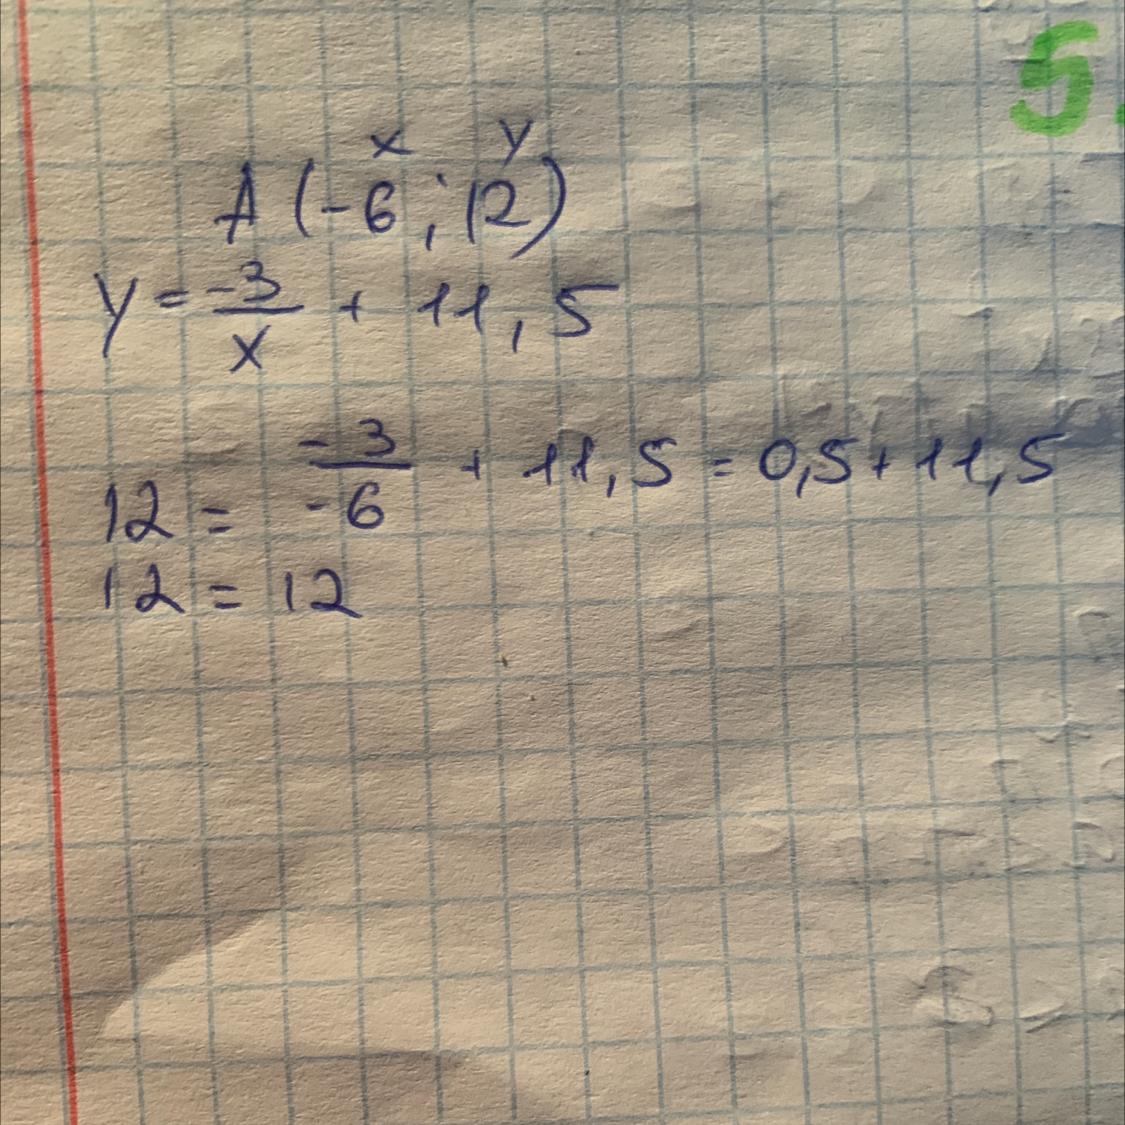 5.
x y
A (-6 ; 12)
y = -3/x + 11,5
12 = -3/-6 + 11,5 = 0,5 + 11,5
12 = 12